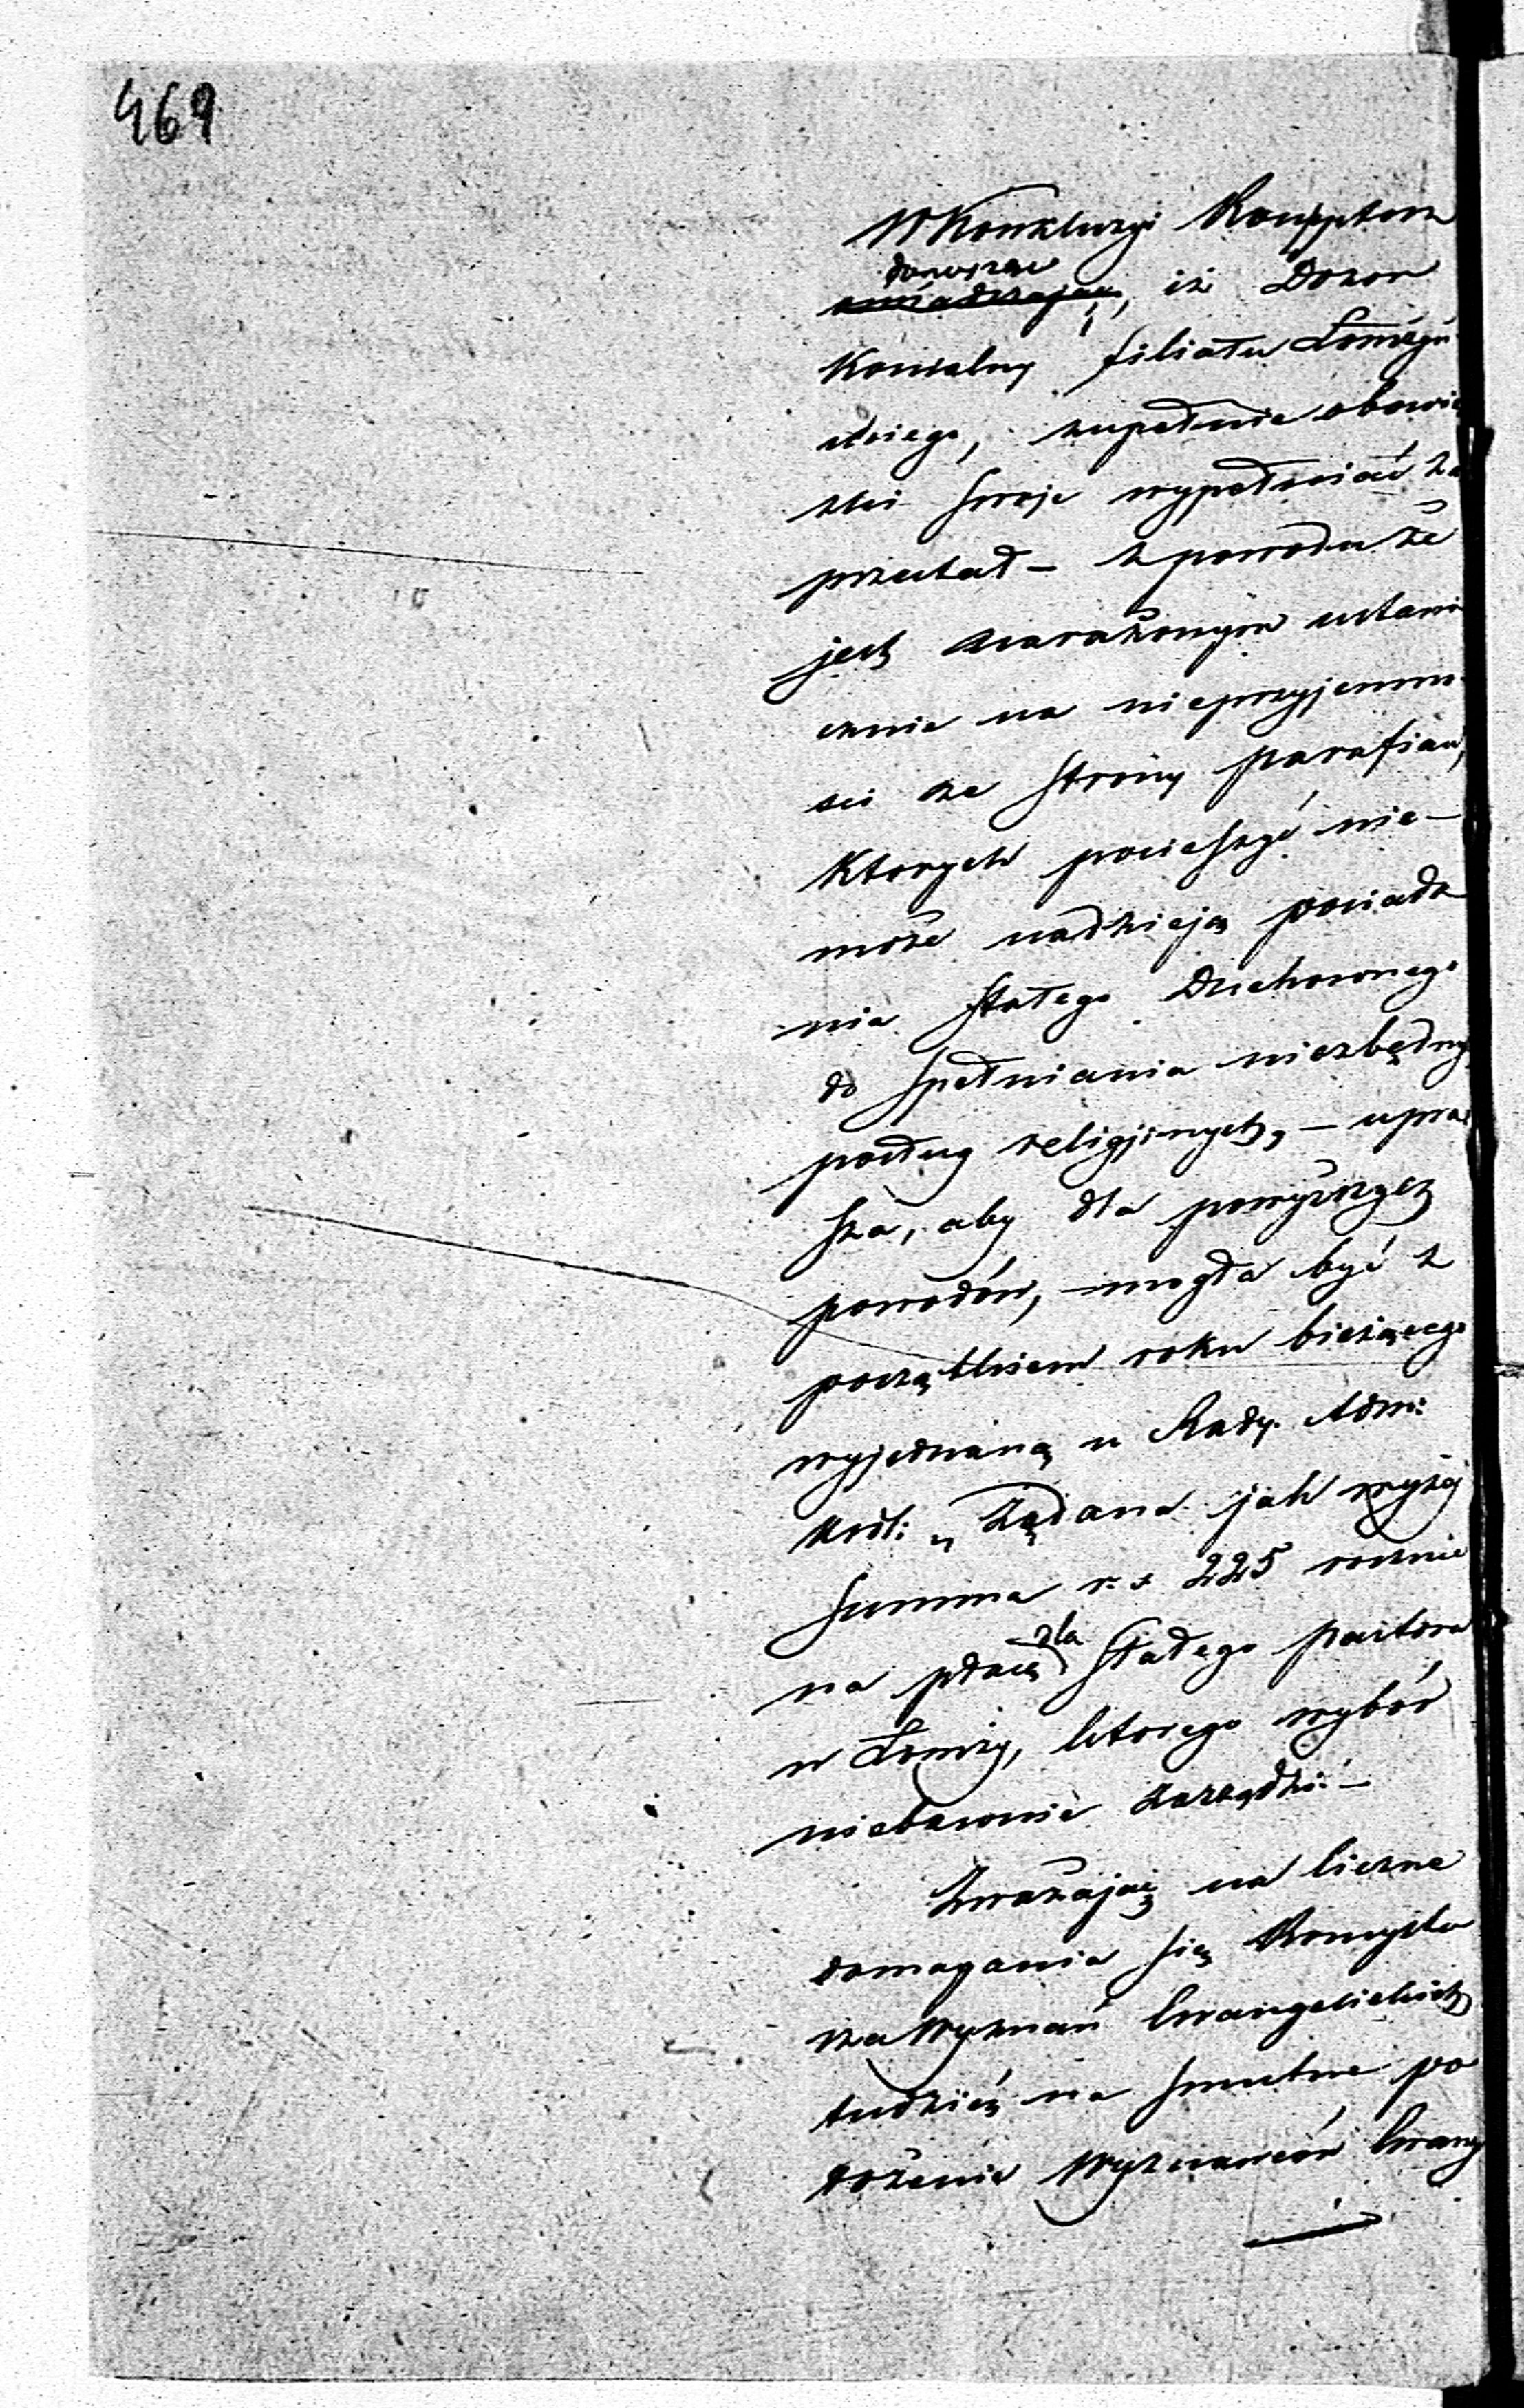 469
W Konkluzyi Konsystorz
donosząc
oświadczając, iż Dozor
Kościelny filiału Łomżyń
skiego, zupełnie obowią
zki swoje wypełniać za
przestał – z powodu że
jest narażonym ustawi
cznie na nieprzyjemno
ści ze strony parafian,
Ktorych pocieszyć nie–
może nadzieją posiada
nia stałego Duchownego
do spełniania niezbędny
posług religijnych, – upra
sza, aby dla powyższych
powodów, mogła być z
początkiem roku bieżącego
wyjednaną u Rady Admi:
Król: żądana jak wyżej
summa r. s. 225 rocznie
na płacę dla stałego pastora
w Łomży, ktorego wybór
niebawnie zarządzi. –
Zważając na liczne
domagania się Konsysto
rza Wyznań Ewangelickich
tudzież na smutne po
łożenie Wyznawców Ewang